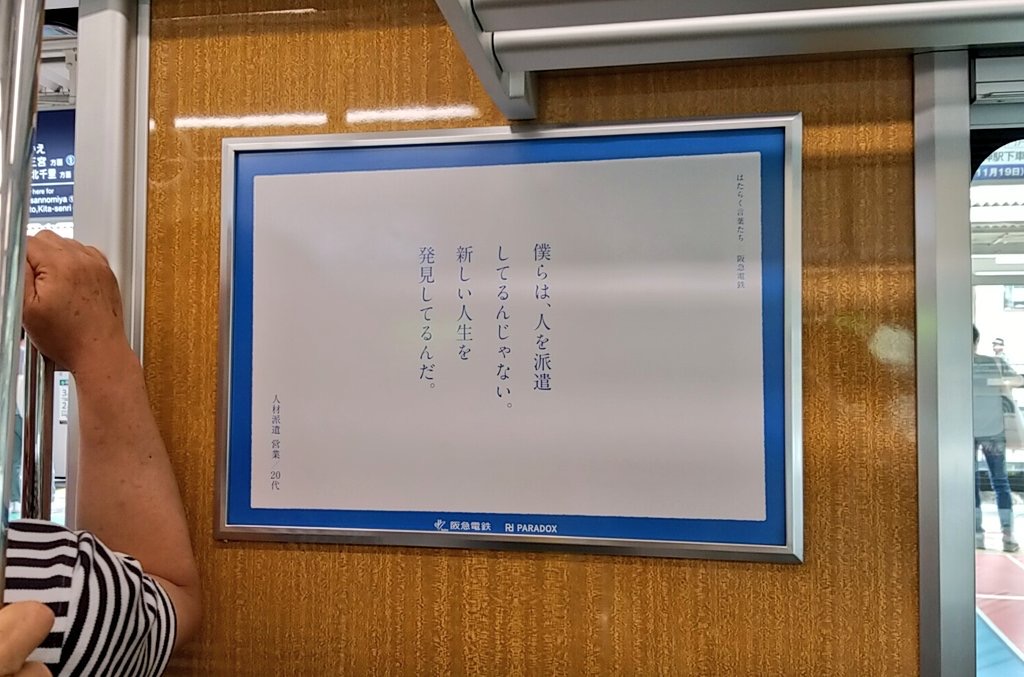 はたらく言葉たち 阪急電鉄
僕らは、人を派遣
してるんじゃない。
新しい人生を
発見してるんだ。
人材派遣 営業 20代
阪急電鉄 PARADOX
三宮 方面
北千里 方面
here for
sannomiya
to,Kita-senri
駅下車
11月19日